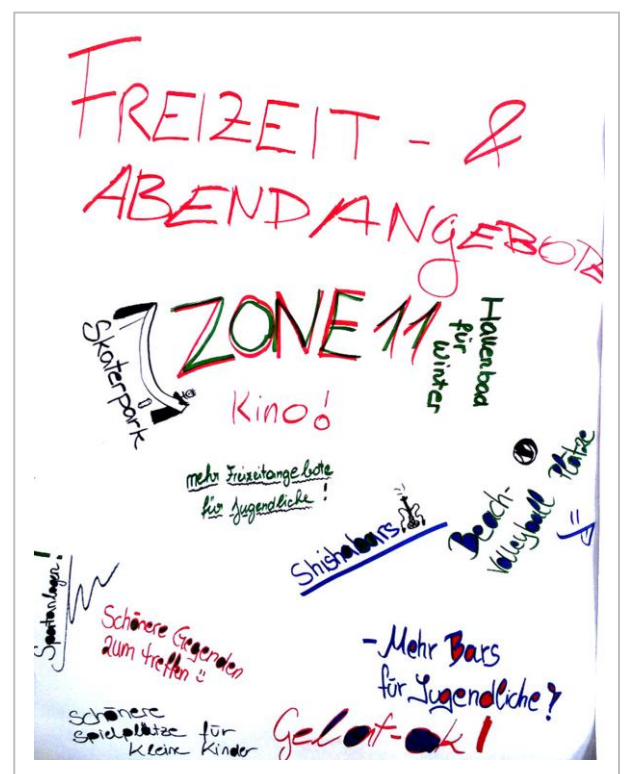 FREIZEIT - &
ABENDANGEBOTE
ZONE 11
Skaterpark
Hallenbad
für
Winter
Kino!
mehr Freizeitangebote
für Jugendliche!
Shishabars
Beach-
Volleyball Plätze
=)
Sportanlagen!
Schönere Gegenden
zum treffen
- Mehr Bars
für Jugendliche!
schönere
spielplätze für
kleine Kinder